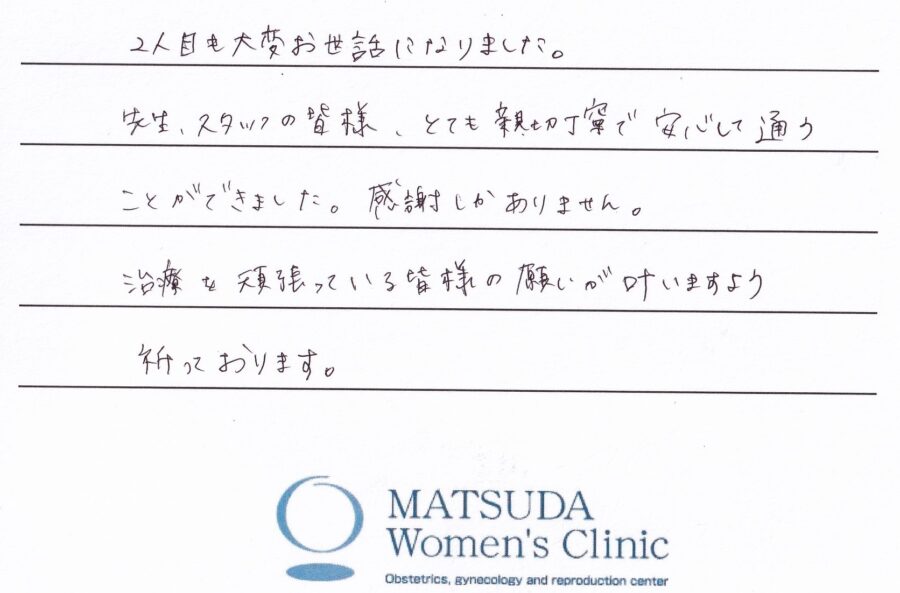 2人目も大変お世話になりました。
先生、スタッフの皆様、とても親切丁寧で安心して通う
ことができました。感謝しかありません。
治療を頑張っている皆様の願いが叶いますよう
祈っております。
MATSUDA
Women's Clinic
Obstetrics, gynecology and reproduction center